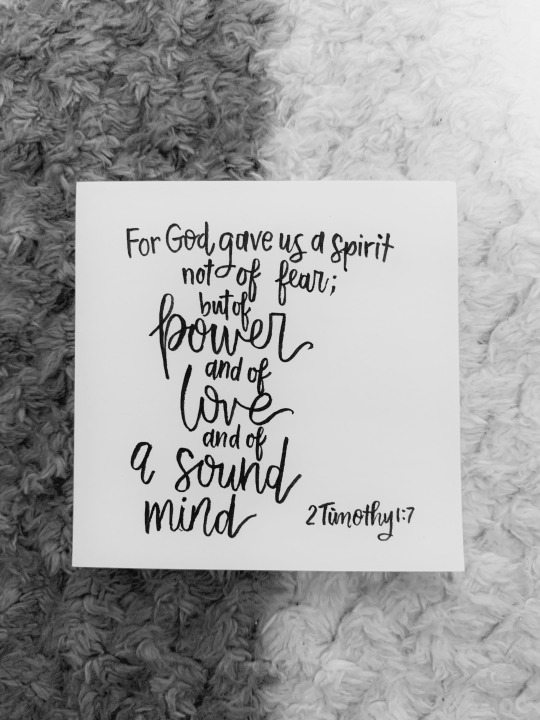 For God gave us a spirit
not of fear;
but of
power
and of
love
and of
a sound
mind
2 Timothy 1:7